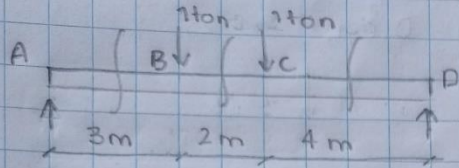 1ton 1ton
A B C D
3m 2m 4m